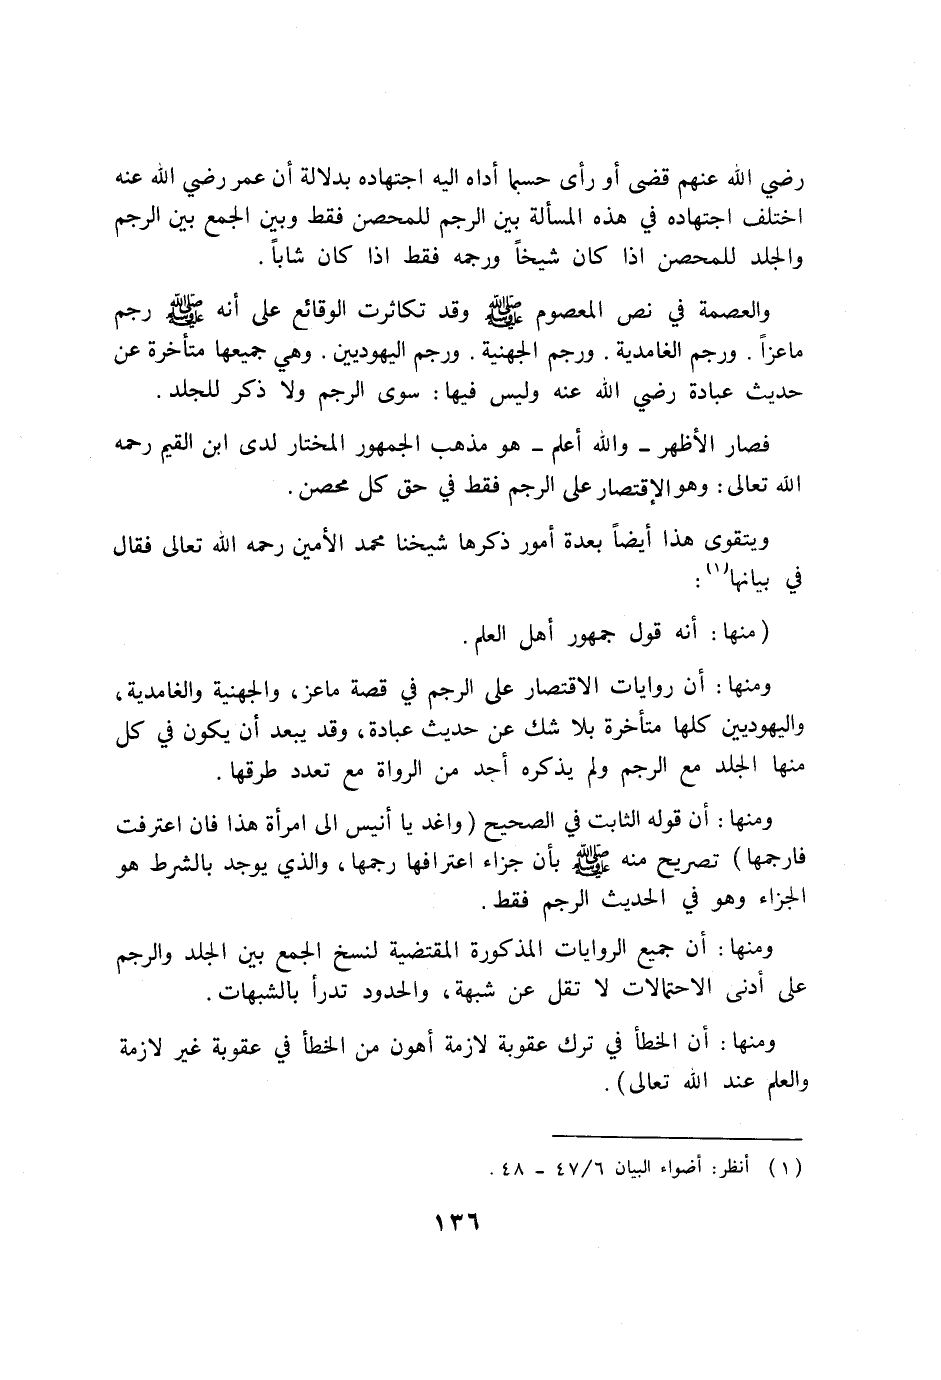 رضي الله عنهم قضى أو رأى حسبما أداه اليه اجتهاده بدلالة أن عمر رضي الله عنه
اختلف اجتهاده في هذه المسألة بين الرجم للمحصن فقط وبين الجمع بين الرجم
والجلد للمحصن اذا كان شيخاً ورجمه فقط اذا كان شاباً .
والعصمة في نص المعصوم ﷺ وقد تكاثرت الوقائع على أنه ﷺ رجم
ماعزاً . ورجم الغامدية . ورجم الجهنية . ورجم اليهوديين . وهي جميعها متأخرة عن
حديث عبادة رضي الله عنه وليس فيها : سوى الرجم ولا ذكر للجلد .
فصار الأظهر – والله أعلم – هو مذهب الجمهور المختار لدى ابن القيم رحمه
الله تعالى : وهو الإقتصار على الرجم فقط في حق كل محصن .
ويتقوى هذا أيضاً بعدة أمور ذكرها شيخنا محمد الأمين رحمه الله تعالى فقال
في بيانها(١) :
( منها : أنه قول جمهور أهل العلم .
ومنها : أن روايات الاقتصار على الرجم في قصة ماعز ، والجهنية والغامدية ،
واليهوديين كلها متأخرة بلا شك عن حديث عبادة ، وقد يبعد أن يكون في كل
منها الجلد مع الرجم ولم يذكره أحد من الرواة مع تعدد طرقها .
ومنها : أن قوله الثابت في الصحيح ( واغد يا أنيس الى امرأة هذا فان اعترفت
فارجمها ) تصريح منه ﷺ بأن جزاء اعترافها رجمها ، والذي يوجد بالشرط هو
الجزاء وهو في الحديث الرجم فقط .
ومنها : أن جميع الروايات المذكورة المقتضية لنسخ الجمع بين الجلد والرجم
على أدنى الاحتمالات لا تقل عن شبهة ، والحدود تدرأ بالشبهات .
ومنها : أن الخطأ في ترك عقوبة لازمة أهون من الخطأ في عقوبة غير لازمة
والعلم عند الله تعالى ) .
( ١ ) أنظر : أضواء البيان ٤٧/٦ – ٤٨ .
١٣٦